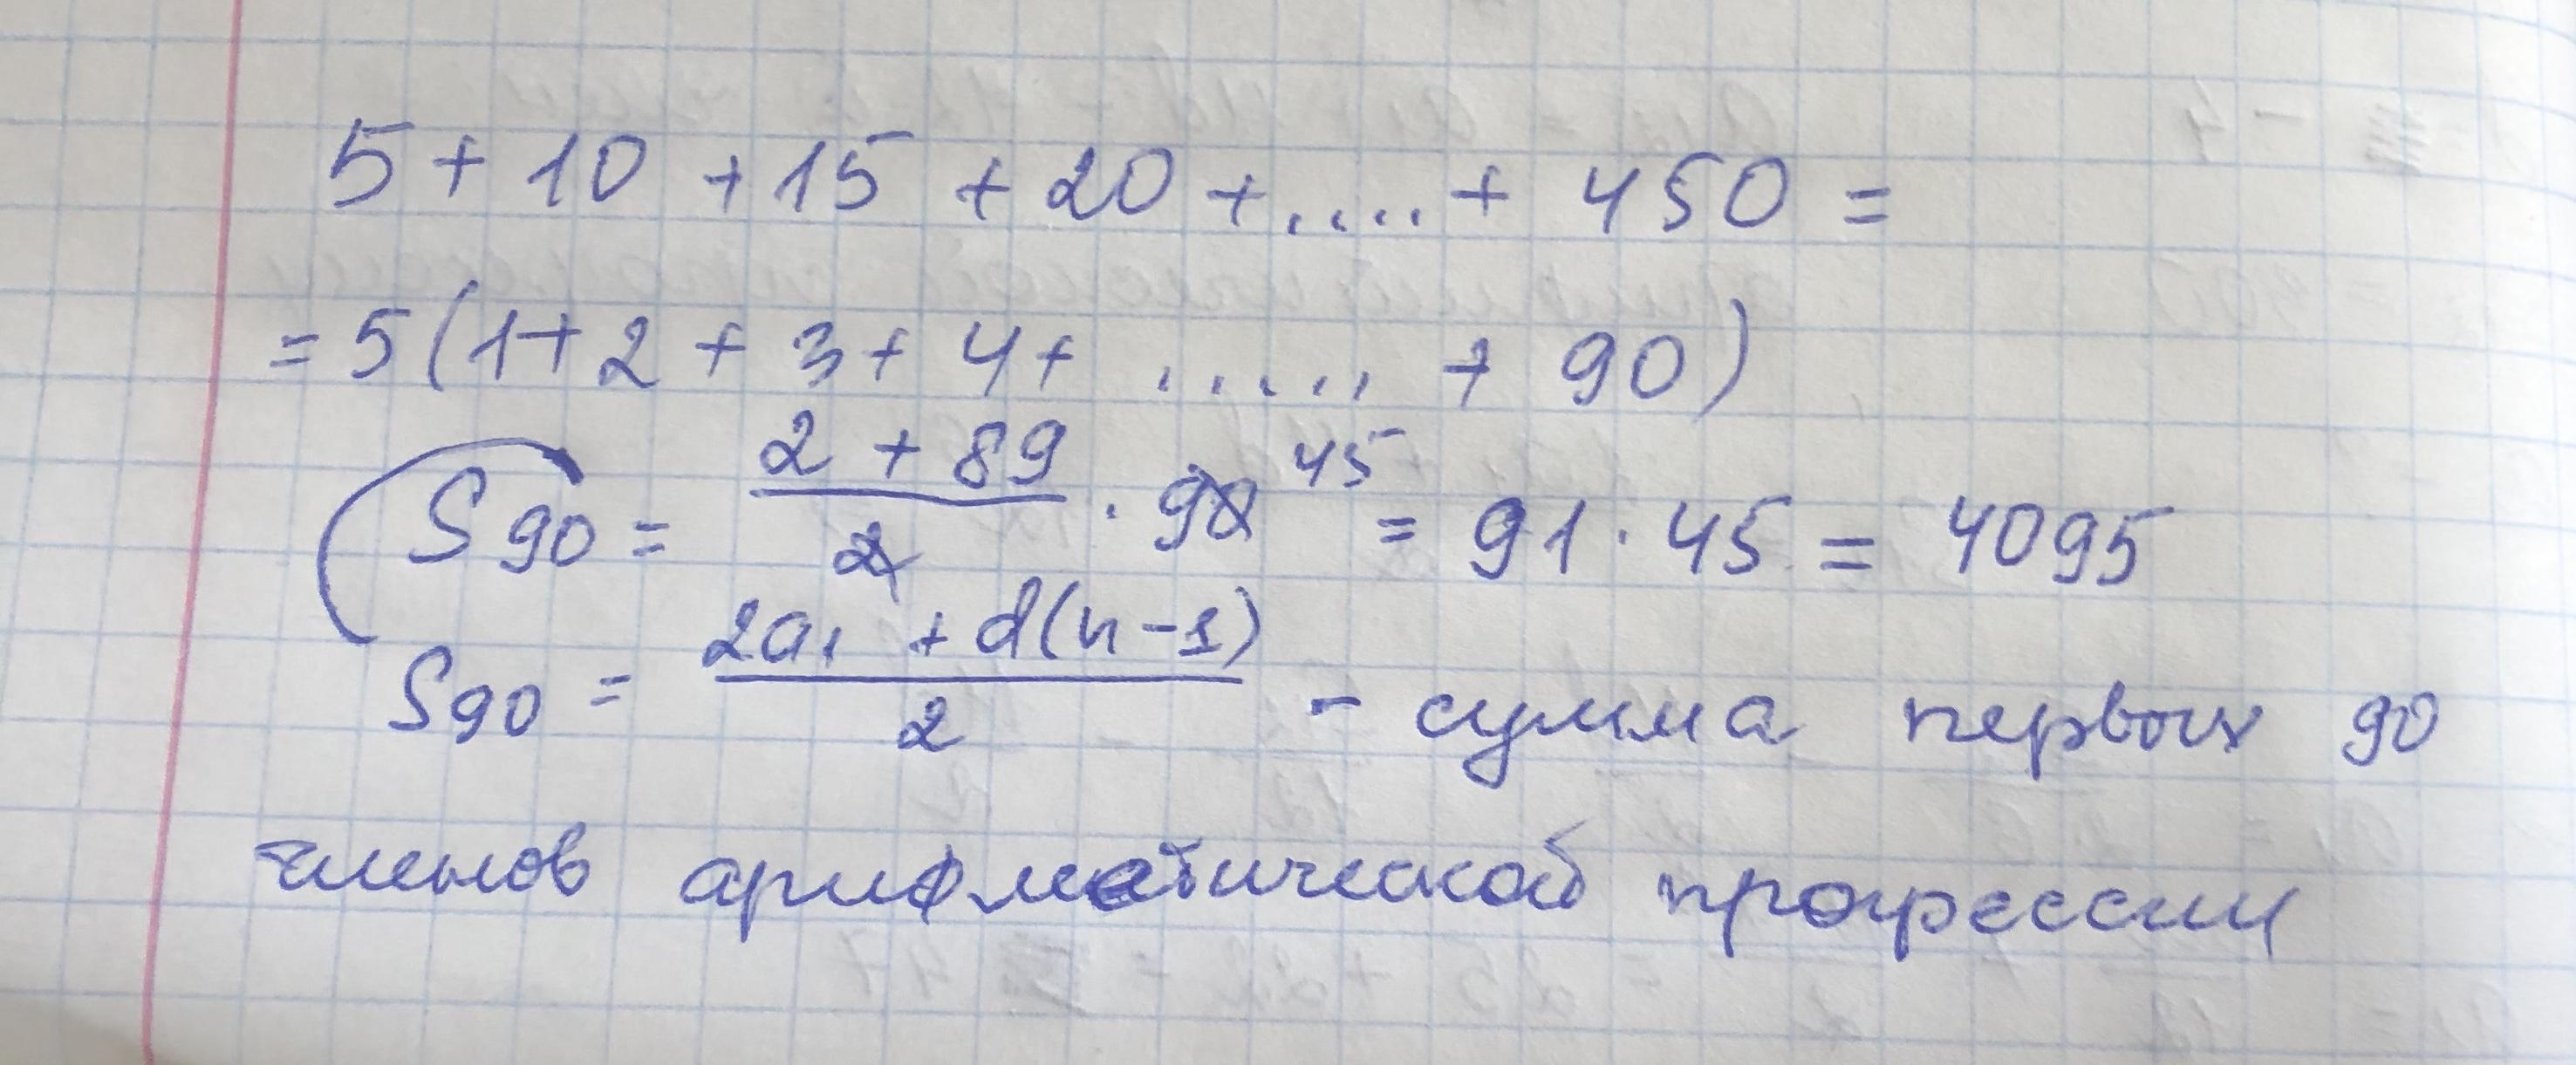 5 + 10 + 15 + 20 + .... + 450 =
= 5 (1 + 2 + 3 + 4 + ..... + 90)
S90 = (2 + 89)/2 · 90 45 = 91 · 45 = 4095
S90 = (2a1 + d(n-1))/2 - сумма первых 90
членов арифметической прогрессии